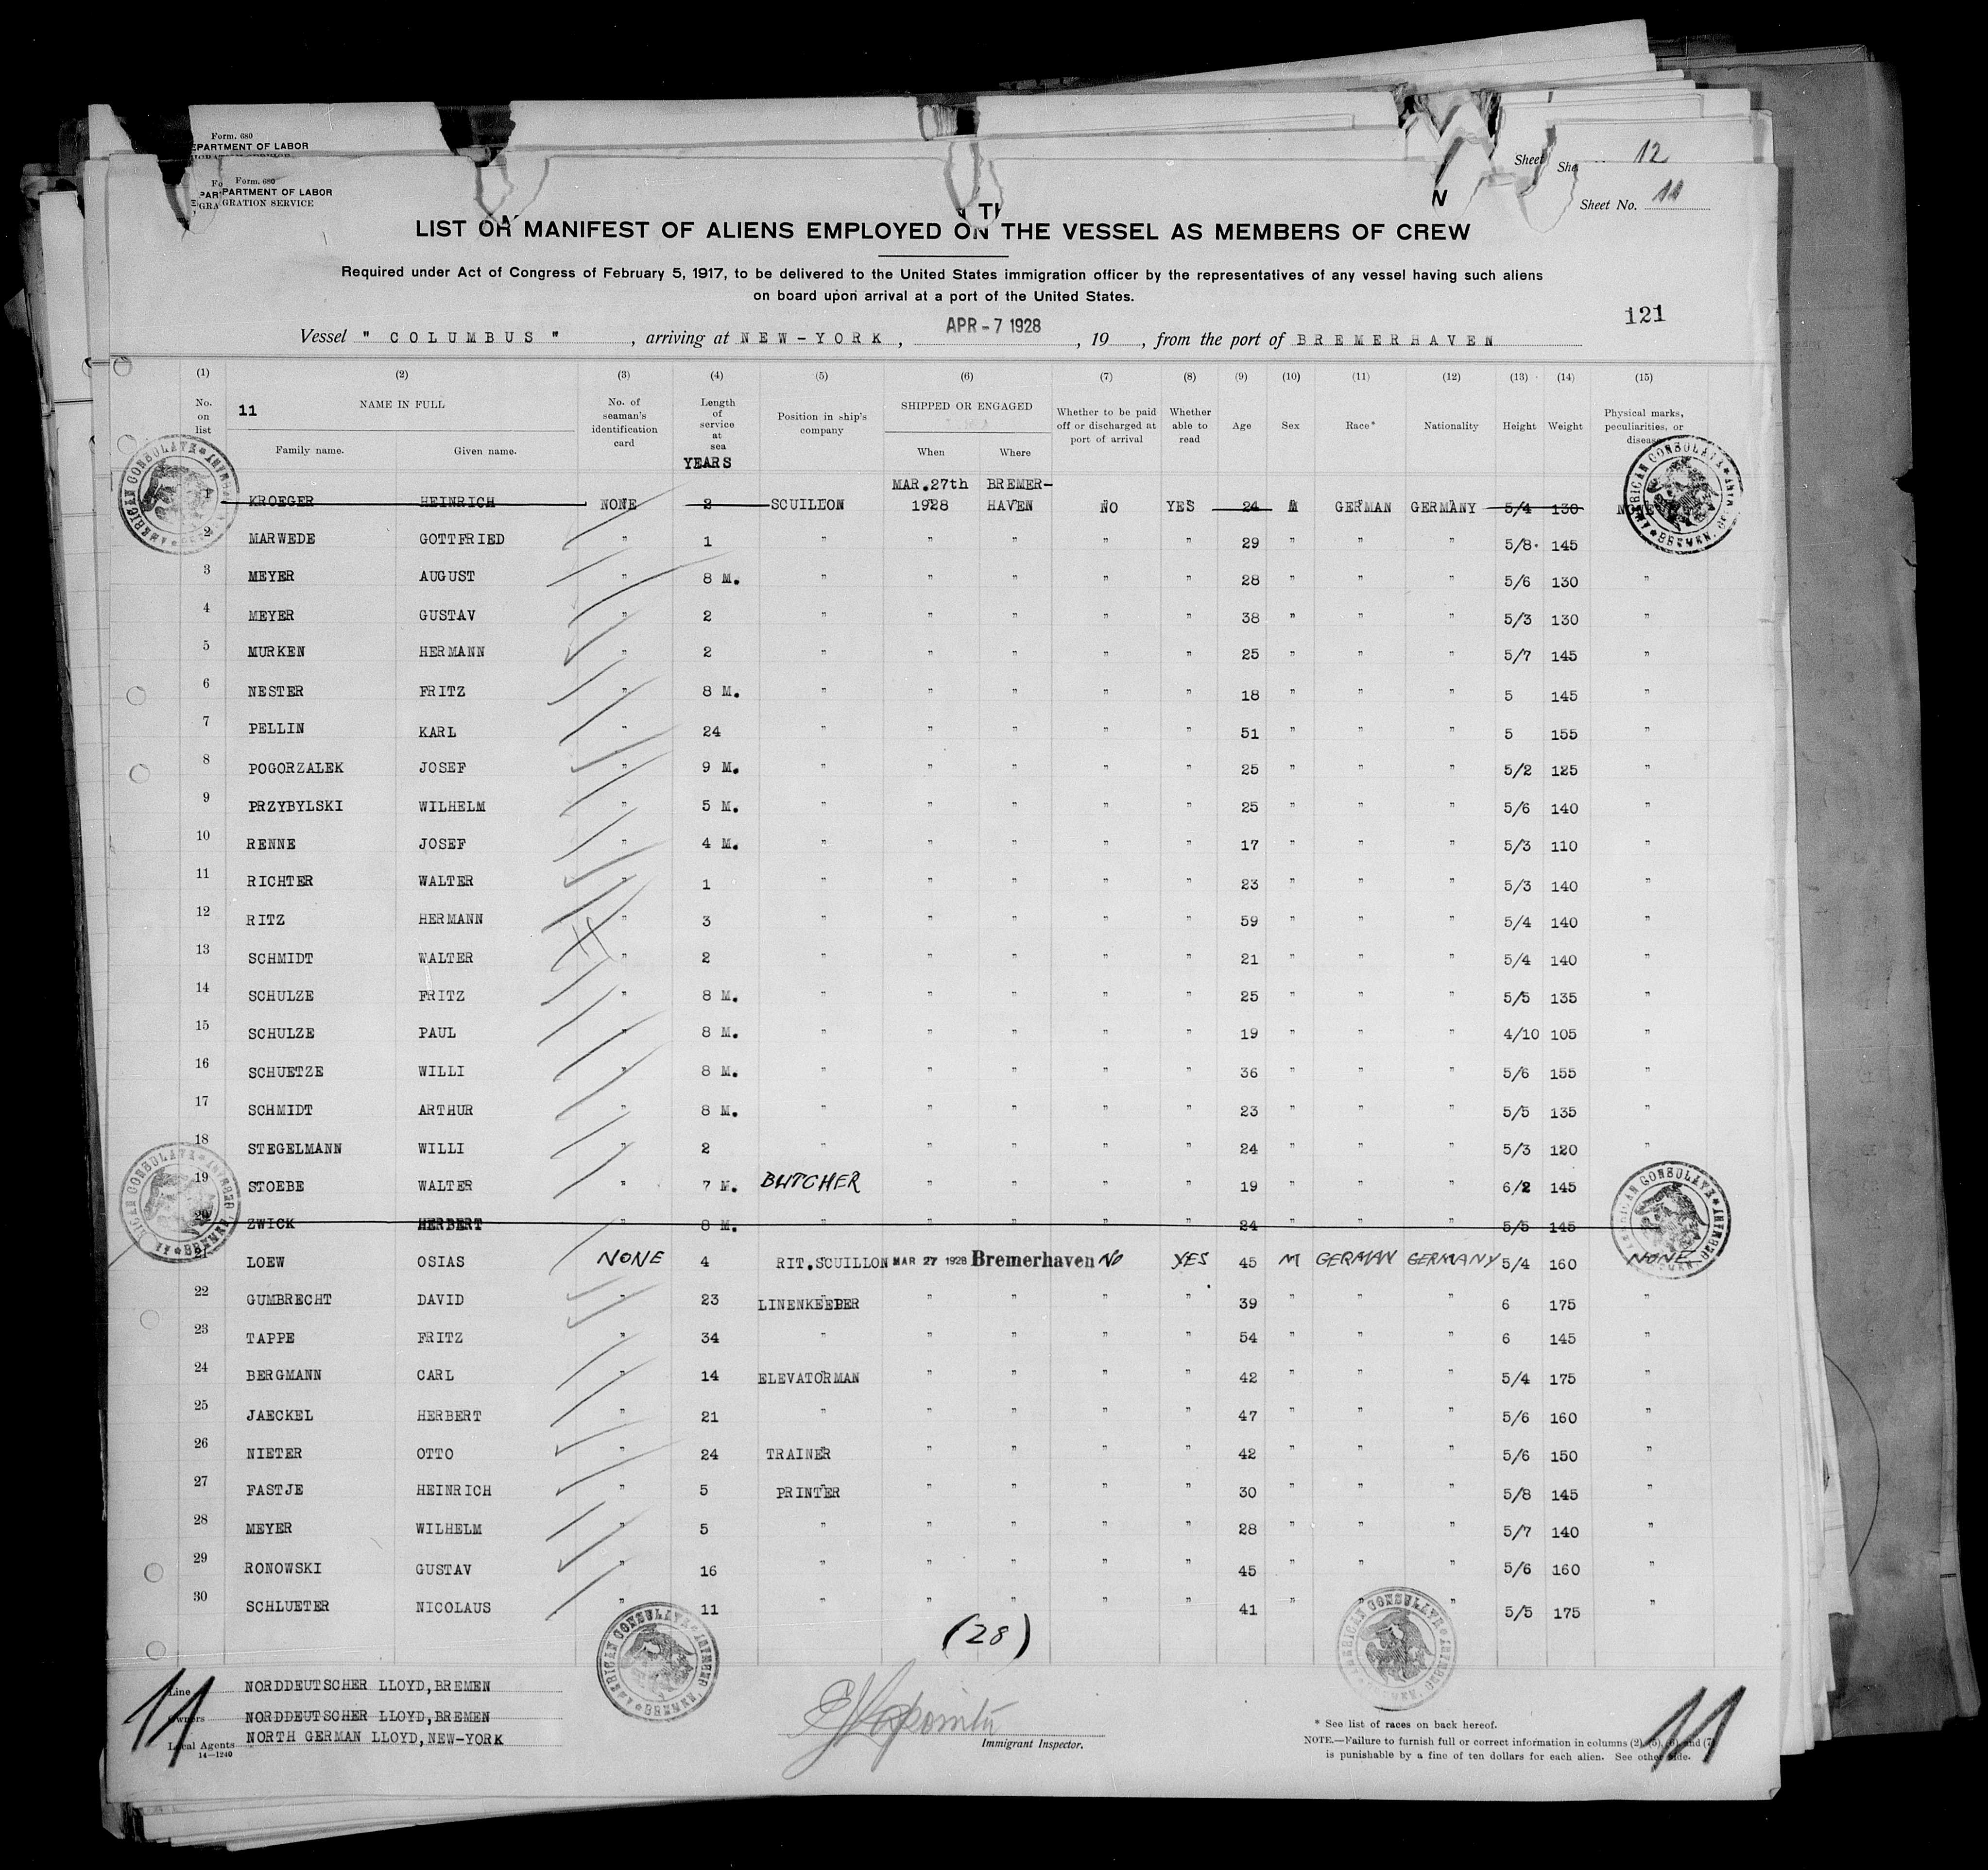 Form. 680
EPARTMENT OF LABOR
Sheet
She
12
Form. 680
PARTMENT OF LABOR
GRATION SERVICE
Sheet No. 11
LIST OR MANIFEST OF ALIENS EMPLOYED ON THE VESSEL AS MEMBERS OF CREW
Required under Act of Congress of February 5, 1917, to be delivered to the United States immigration officer by the representatives of any vessel having such aliens
on board upon arrival at a port of the United States.
121
Vessel " COLUMBUS " , arriving at NEW-YORK , APR - 7 1928 , 19 , from the port of BREMERHAVEN
(1) (2) (3) (4) (5) (6) (7) (8) (9) (10) (11) (12) (13) (14) (15)
No. on list 11 NAME IN FULL Family name. Given name. No. of seaman's identification card Length of service at sea YEARS Position in ship's company SHIPPED OR ENGAGED When Where Whether to be paid off or discharged at port of arrival Whether able to read Age Sex Race* Nationality Height Weight Physical marks, peculiarities, or disease
1 KROEGER HEINRICH NONE 2 SCUILLON MAR.27th 1928 BREMER-HAVEN NO YES 24 M GERMAN GERMANY 5/4 130 NONE
2 MARWEDE GOTTFRIED " 1 " " " " " 29 " " " 5/8 145 "
3 MEYER AUGUST " 8 M. " " " " " 28 " " " 5/6 130 "
4 MEYER GUSTAV " 2 " " " " " 38 " " " 5/3 130 "
5 MURKEN HERMANN " 2 " " " " " 25 " " " 5/7 145 "
6 NESTER FRITZ " 8 M. " " " " " 18 " " " 5 145 "
7 PELLIN KARL " 24 " " " " " 51 " " " 5 155 "
8 POGORZALEK JOSEF " 9 M. " " " " " 25 " " " 5/2 125 "
9 PRZYBYLSKI WILHELM " 5 M. " " " " " 25 " " " 5/6 140 "
10 RENNE JOSEF " 4 M. " " " " " 17 " " " 5/3 110 "
11 RICHTER WALTER " 1 " " " " " 23 " " " 5/3 140 "
12 RITZ HERMANN " 3 " " " " " 59 " " " 5/4 140 "
13 SCHMIDT WALTER " 2 " " " " " 21 " " " 5/4 140 "
14 SCHULZE FRITZ " 8 M. " " " " " 25 " " " 5/5 135 "
15 SCHULZE PAUL " 8 M. " " " " " 19 " " " 4/10 105 "
16 SCHUETZE WILLI " 8 M. " " " " " 36 " " " 5/6 155 "
17 SCHMIDT ARTHUR " 8 M. " " " " " 23 " " " 5/5 135 "
18 STEGELMANN WILLI " 2 " " " " " 24 " " " 5/3 120 "
19 STOEBE WALTER " 7 M. BUTCHER " " " " 19 " " " 6/2 145 "
20 ZWICK HERBERT " 8 M. " " " " " 24 " " " 5/5 145 "
21 LOEW OSIAS NONE 4 RIT.SCUILLON MAR 27 1928 Bremerhaven NO YES 45 M GERMAN GERMANY 5/4 160 NONE
22 GUMBRECHT DAVID " 23 LINENKEEPER " " " " 39 " " " 6 175 "
23 TAPPE FRITZ " 34 " " " " " 54 " " " 6 145 "
24 BERGMANN CARL " 14 ELEVATORMAN " " " " 42 " " " 5/4 175 "
25 JAECKEL HERBERT " 21 " " " " " 47 " " " 5/6 160 "
26 NIETER OTTO " 24 TRAINER " " " " 42 " " " 5/6 150 "
27 FASTJE HEINRICH " 5 PRINTER " " " " 30 " " " 5/8 145 "
28 MEYER WILHELM " 5 " " " " " 28 " " " 5/7 140 "
29 RONOWSKI GUSTAV " 16 " " " " " 45 " " " 5/6 160 "
30 SCHLUETER NICOLAUS " 11 " " " " " 41 " " " 5/5 175 "
(28)
AMERICAN CONSULATE BREMEN, GERMANY
11
Line NORDDEUTSCHER LLOYD,BREMEN
Owners NORDDEUTSCHER LLOYD,BREMEN
Local Agents NORTH GERMAN LLOYD,NEW-YORK
14—1240
Immigrant Inspector.
* See list of races on back hereof.
NOTE.—Failure to furnish full or correct information in columns (2), (5), (6), and (7)
is punishable by a fine of ten dollars for each alien. See other side.
11